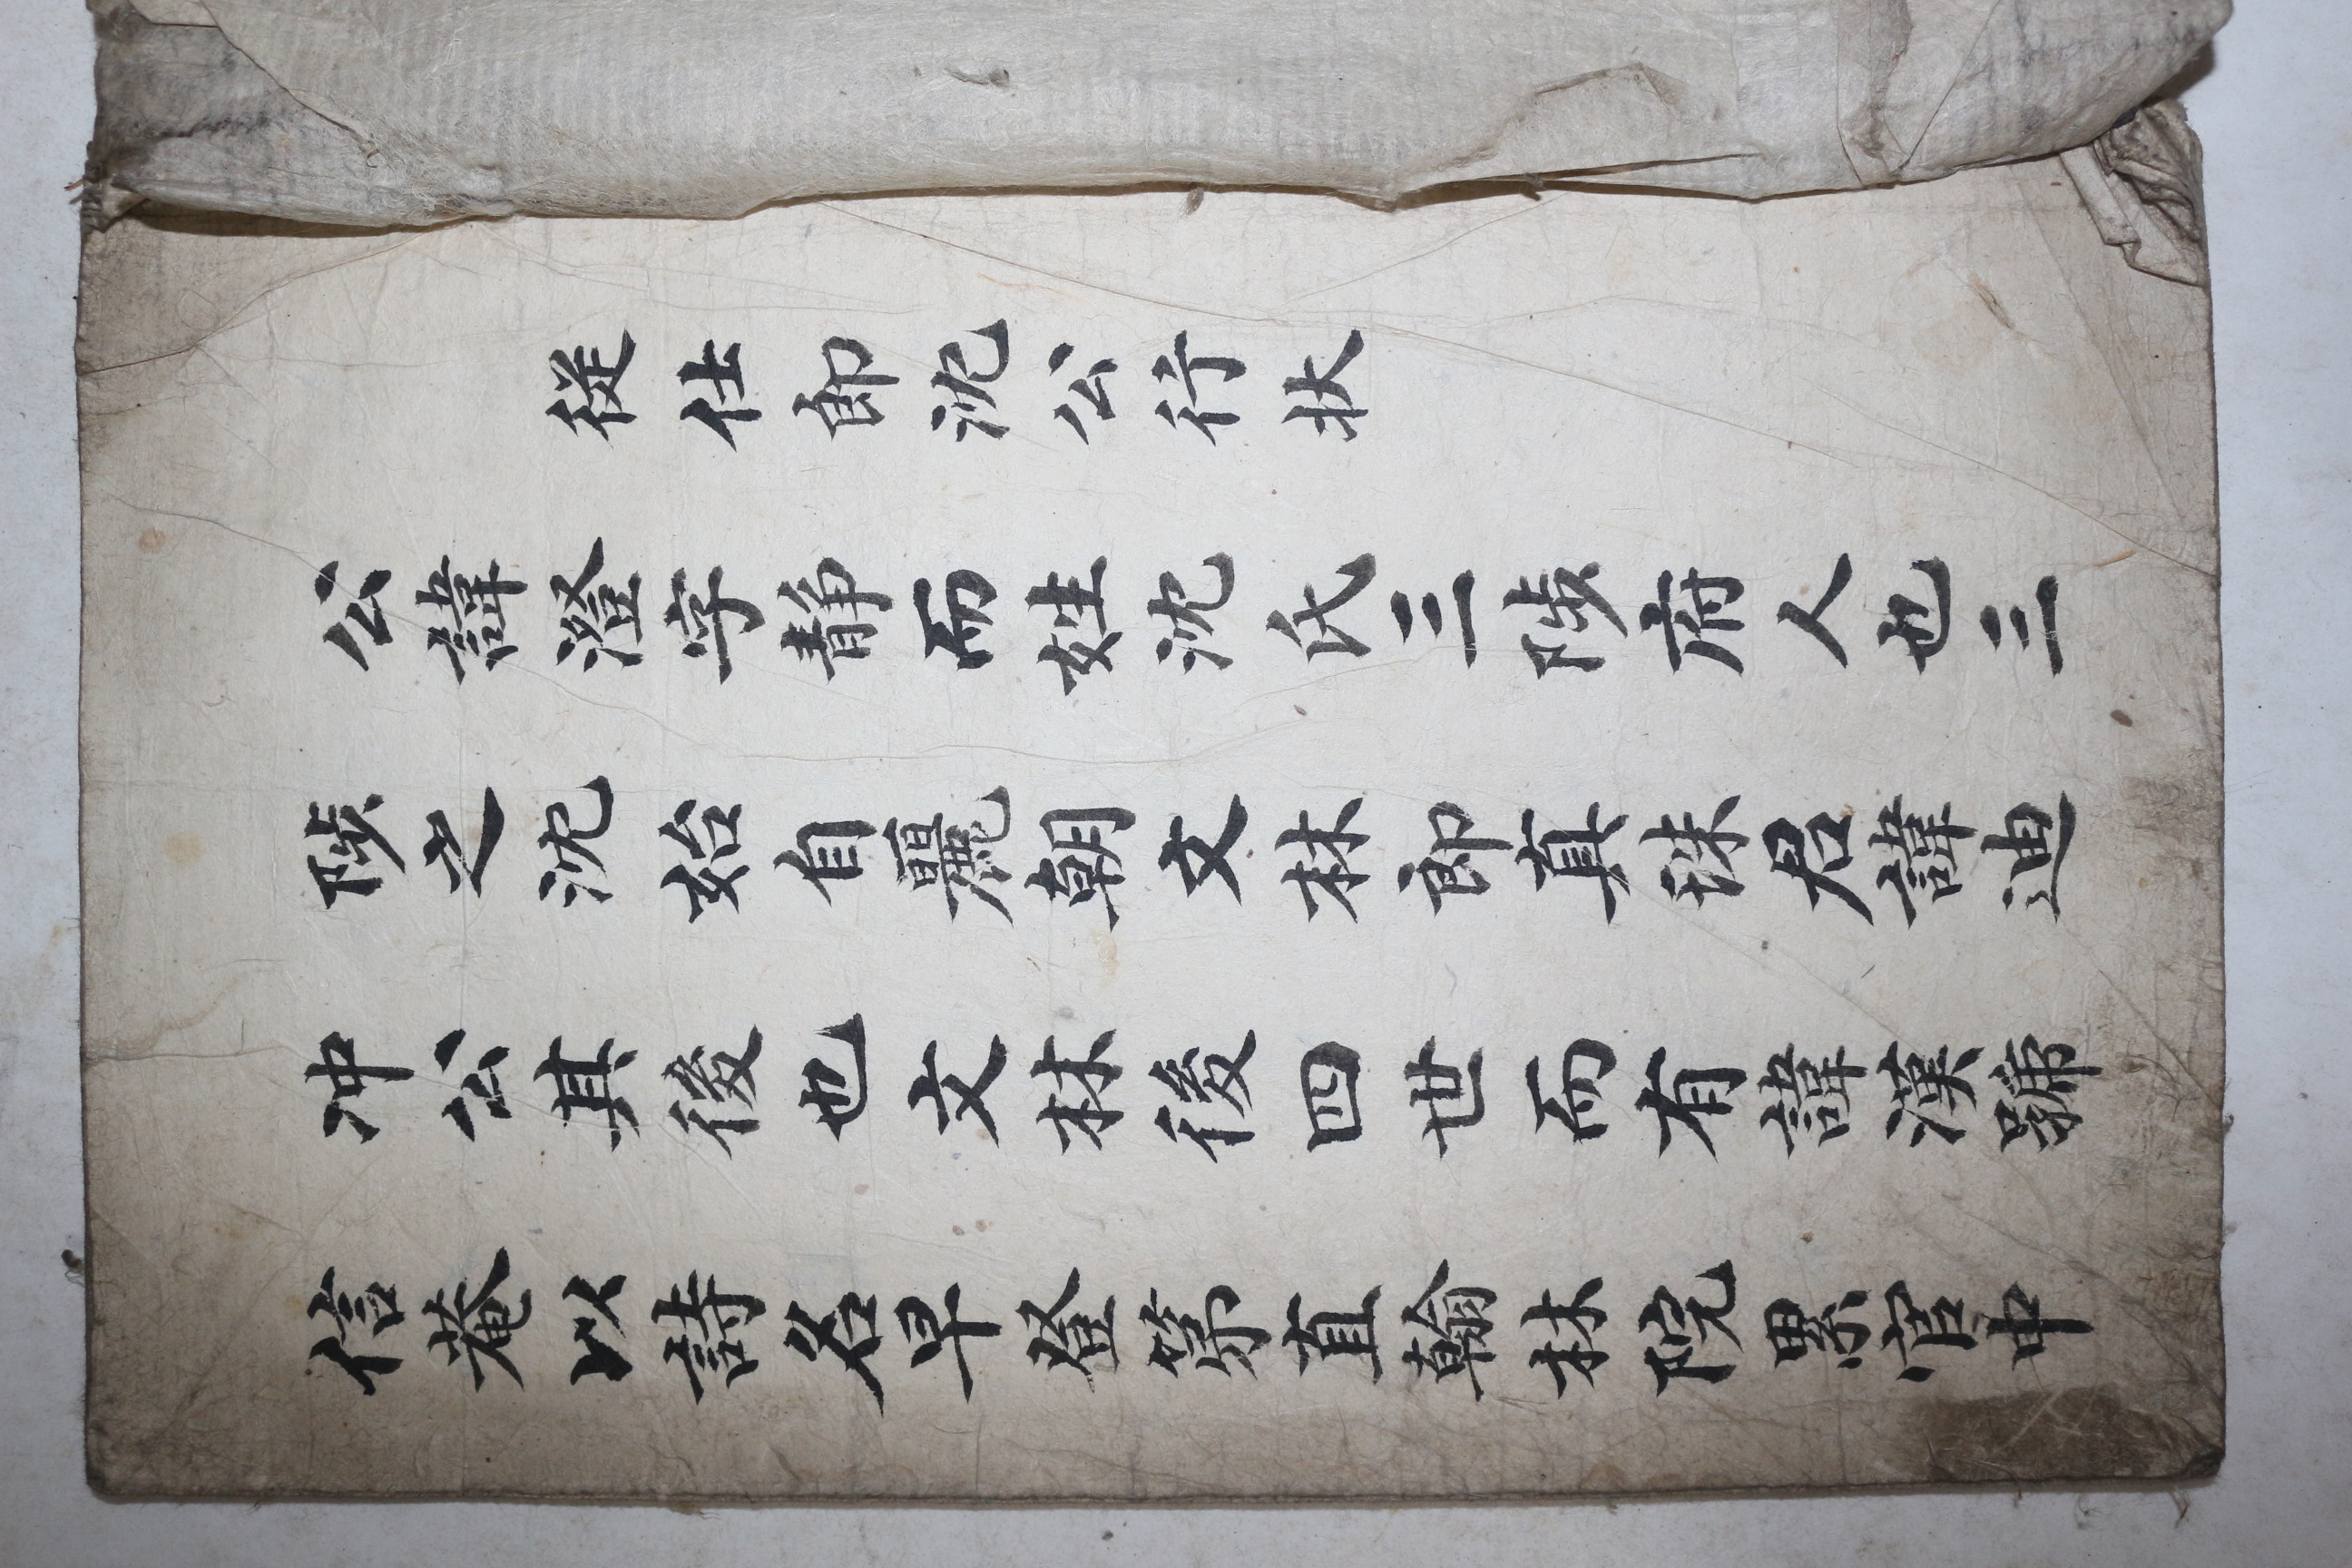 從仕郎沈公行狀
公諱澄字靜而姓沈氏三陟府人也三
陟之沈始自麗朝文林郎真珠君諱迪
冲公其後也文林後四世而有諱漢號
信菴以詩名早登第直翰林院累官中